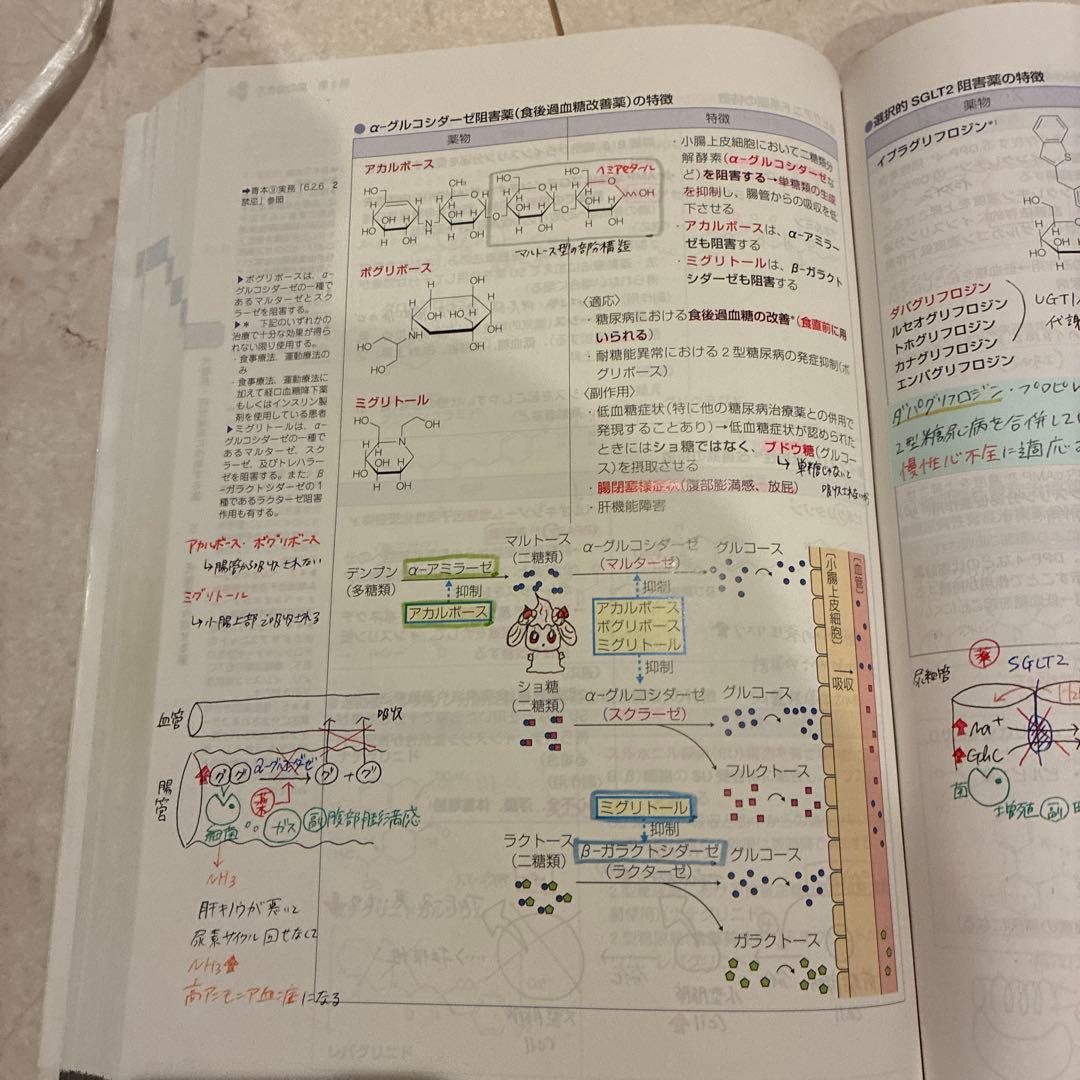 ●α-グルコシダーゼ阻害薬(食後過血糖改善薬)の特徴
薬物
特徴
アカルボース
ヘミアセタール
CH₃
HO
OH
マルトース型の部分構造
ボグリボース
HO
OH
NH
ミグリトール
HO
OH
N
・小腸上皮細胞において二糖類分
解酵素(α-グルコシダーゼな
ど)を阻害する→単糖類の生成
を抑制し、腸管からの吸収を低
下させる
・アカルボースは、α-アミラー
ゼも阻害する
・ミグリトールは、β-ガラクト
シダーゼも阻害する
〈適応〉
・糖尿病における食後過血糖の改善*(食直前に用
いられる)
・耐糖能異常における2型糖尿病の発症抑制(ボ
グリボース)
〈副作用〉
・低血糖症状(特に他の糖尿病治療薬との併用で
発現することあり)→低血糖症状が認められた
ときにはショ糖ではなく、ブドウ糖(グルコー
ス)を摂取させる
↳単糖じゃないと
吸収されないから
・腸閉塞様症状(腹部膨満感、放屁)
・肝機能障害
➡青本⑨実務「6.2.6 2
禁忌」参照
▶ボグリボースは、α-
グルコシダーゼの一種で
あるマルターゼとスク
ラーゼを阻害する。
▶* 下記のいずれかの
治療で十分な効果が得ら
れない限り使用する。
・食事療法、運動療法の
み
・食事療法、運動療法に
加えて経口血糖降下薬
もしくはインスリン製
剤を使用している患者
▶ミグリトールは、α-
グルコシダーゼの一種で
あるマルターゼ、スク
ラーゼ、及びトレハラー
ゼを阻害する。また、β
-ガラクトシダーゼの1
種であるラクターゼ阻害
作用も有する。
アカルボース・ボグリボース
↳腸管から吸収されない
ミグリトール
↳小腸上部で吸収される
デンプン
(多糖類)
α-アミラーゼ
抑制
アカルボース
マルトース
(二糖類)
α-グルコシダーゼ
(マルターゼ)
抑制
アカルボース
ボグリボース
ミグリトール
抑制
グルコース
〔小腸上皮細胞〕
〔血管〕
吸収
ショ糖
(二糖類)
α-グルコシダーゼ
(スクラーゼ)
グルコース
フルクトース
ミグリトール
抑制
ラクトース
(二糖類)
β-ガラクトシダーゼ
(ラクターゼ)
グルコース
ガラクトース
血管
吸収
腸管
グ グ
α-グルコシダーゼ
グ + グ
薬
細菌
ガス
副 腹部膨満感
NH₃
肝キノウが悪いと
尿素サイクル回せなくて
NH₃⬆
高アンモニア血症になる
●選択的SGLT2阻害薬の特徴
薬物
イプラグリフロジン*¹
S
HO
ダパグリフロジン
ルセオグリフロジン
トホグリフロジン
カナグリフロジン
エンパグリフロジン
UGT1A
代謝
ダパグリフロジン・プロピレ
2型糖尿病を合併してい
慢性心不全に適応
尿細管
薬
SGLT2
Na⁺
Glc
菌
増殖 副